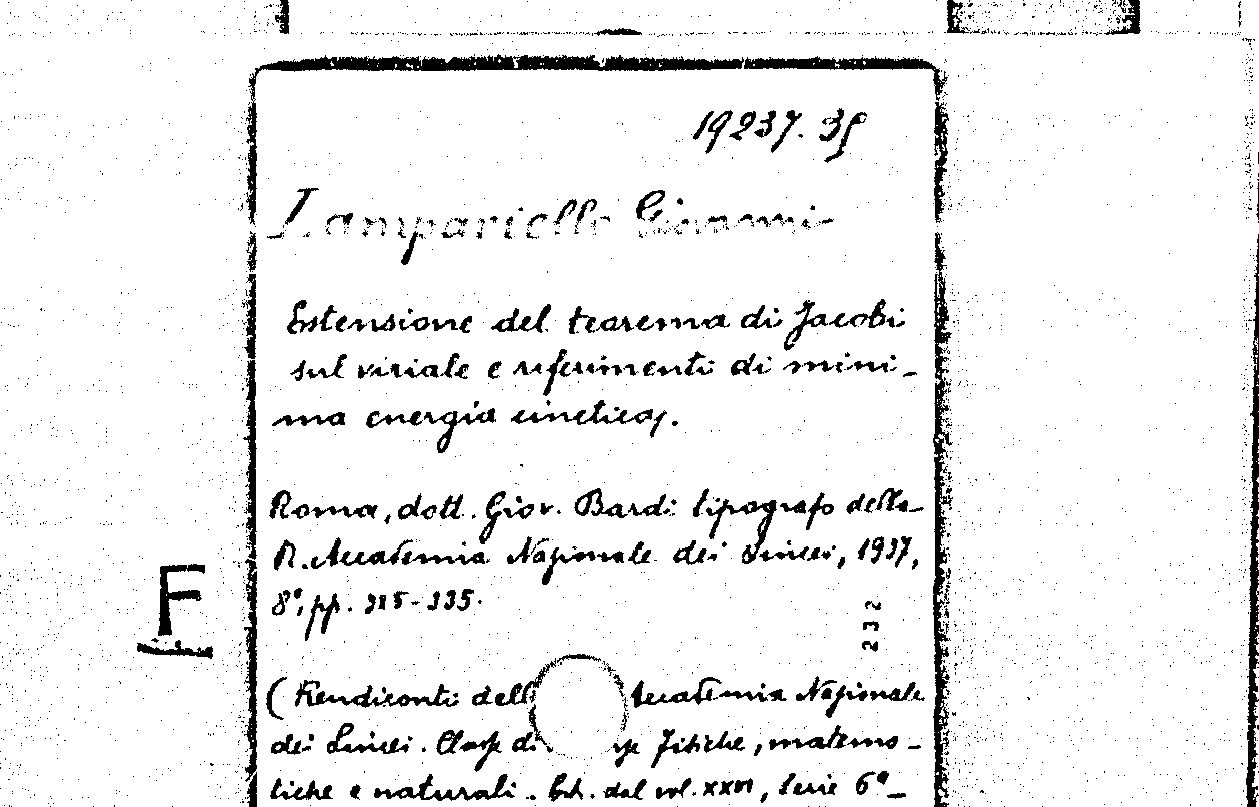 19237.35
Lampariello Giovanni
Estensione del teorema di Jacobi
sul viriale e riferimenti di mini-
ma energia cinetica.
Roma, dott. Giov. Bardi tipografo della
R. Accademia Nazionale dei Lincei, 1937,
8°, pp. -335.
F
232
(Rendiconti dell Accademia Nazionale
dei Lincei. Classe di fisiche, matema-
tiche e naturali. Estr. dal vol. XXVI, serie 6ª-